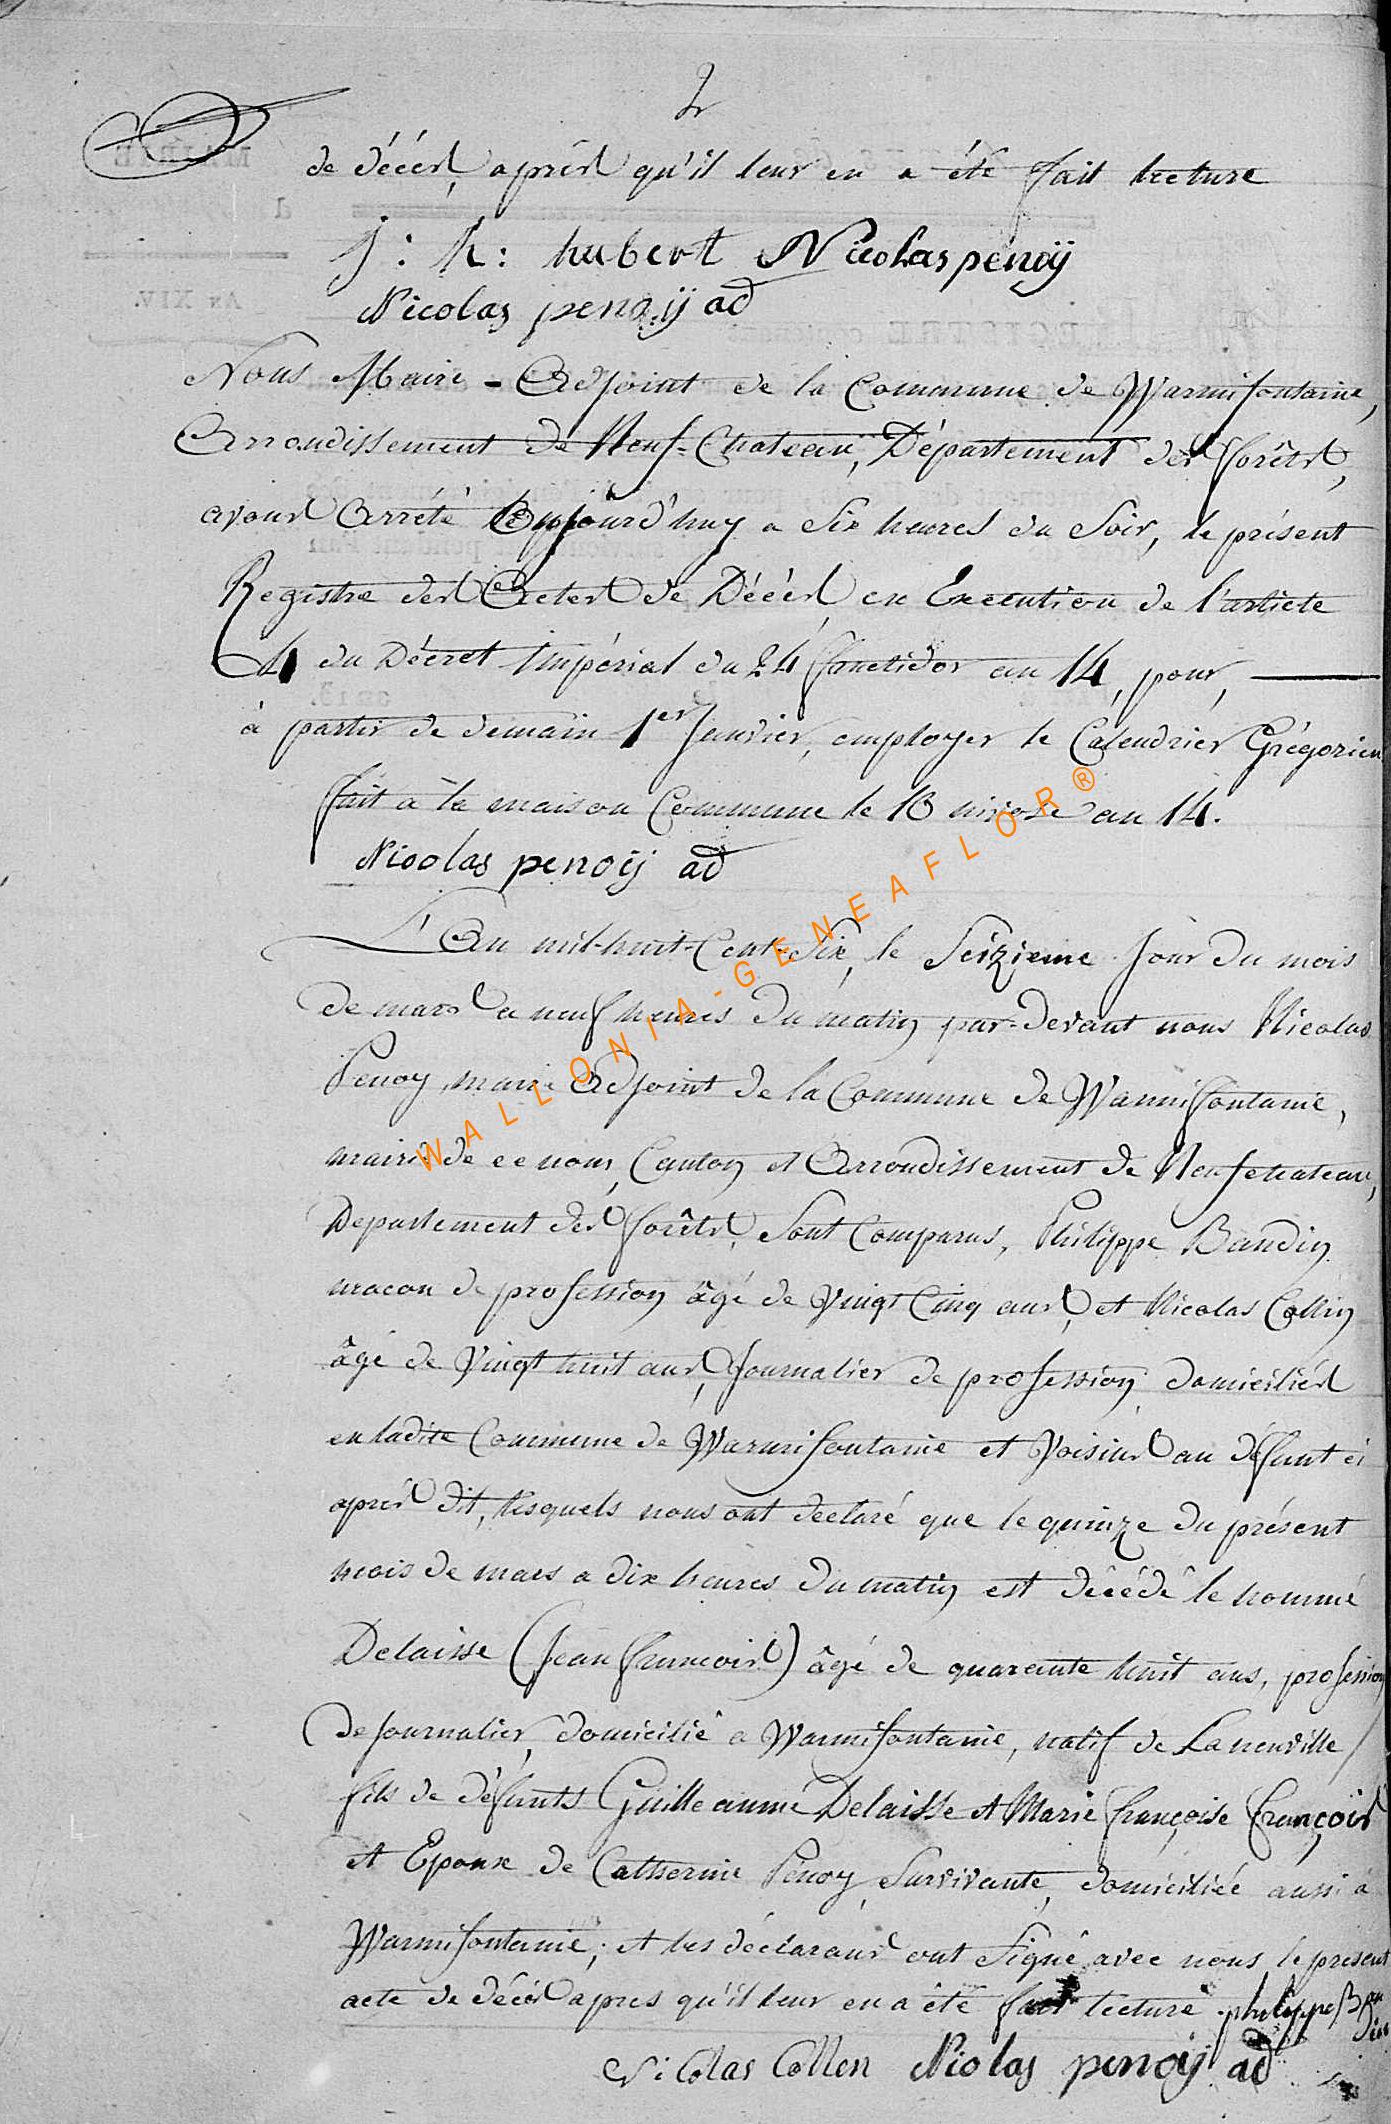 2
de décès, après qu'il leur en a été fait lecture
j : h : hubert Nicolas penoÿ
Nicolas penoÿ ad
Nous Maire - Adjoint de la Commune de Warmifontaine,
Arrondissement de Neuf-Chateau, Département des forêts,
avons Arrété Aujourd'huy a Six heures du Soir, le présent
Registre des Actes de Décès, en Execution de l'article
4 du Décret Impérial du 24 fructidor an 14, pour,
à partir de demain 1er Janvier, employer le Calendrier Grégorien
fait a la maison Commune le 10 nivose an 14.
Nicolas penoÿ ad
L'An mil-huit-Cent-Six, le Seizieme Jour du mois
de mars a neuf heures du matin par-devant nous Nicolas
Penoy, maire Adjoint de la Commune de Warmifontaine,
mairie de ce nom, Canton et Arrondissement de Neufchateau,
Departement des forêts, Sont Comparus, Philippe Baudin
macon de profession âgé de Vingt Cinq ans, et Nicolas Collin
âgé de Vingt huit ans, Journalier de profession, domiciliés
en ladite Commune de Warmifontaine et Voisins au défunt ci
après dit, lesquels nous ont declaré que le quinze du présent
mois de mars a dix heures du matin est décédé le nommé
Delaisse (Jean françois) âgé de quarente huit ans, profession
de Journalier, domicilié a Warmifontaine, natif de Laneuville
fils de défunts Guilleaume Delaisse et Marie françoise françois
et Epoux de Catherine Penoy, Survivante, domiciliée aussi a
Warmifontaine; et les déclarans ont Signé avec nous le present
acte de décès apres qu'il leur en a été fait lecture philippe Baudin
Nicolas Collen Niolas penoÿ ad
MAIRIE
d
AN XIV.
REGISTRE
WALLONIA-GENEAFLOR®